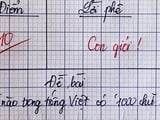 Điểm Lời phê
10 Con giỏi!
Đề bài
nào trong tiếng Việt có 1000 chữ